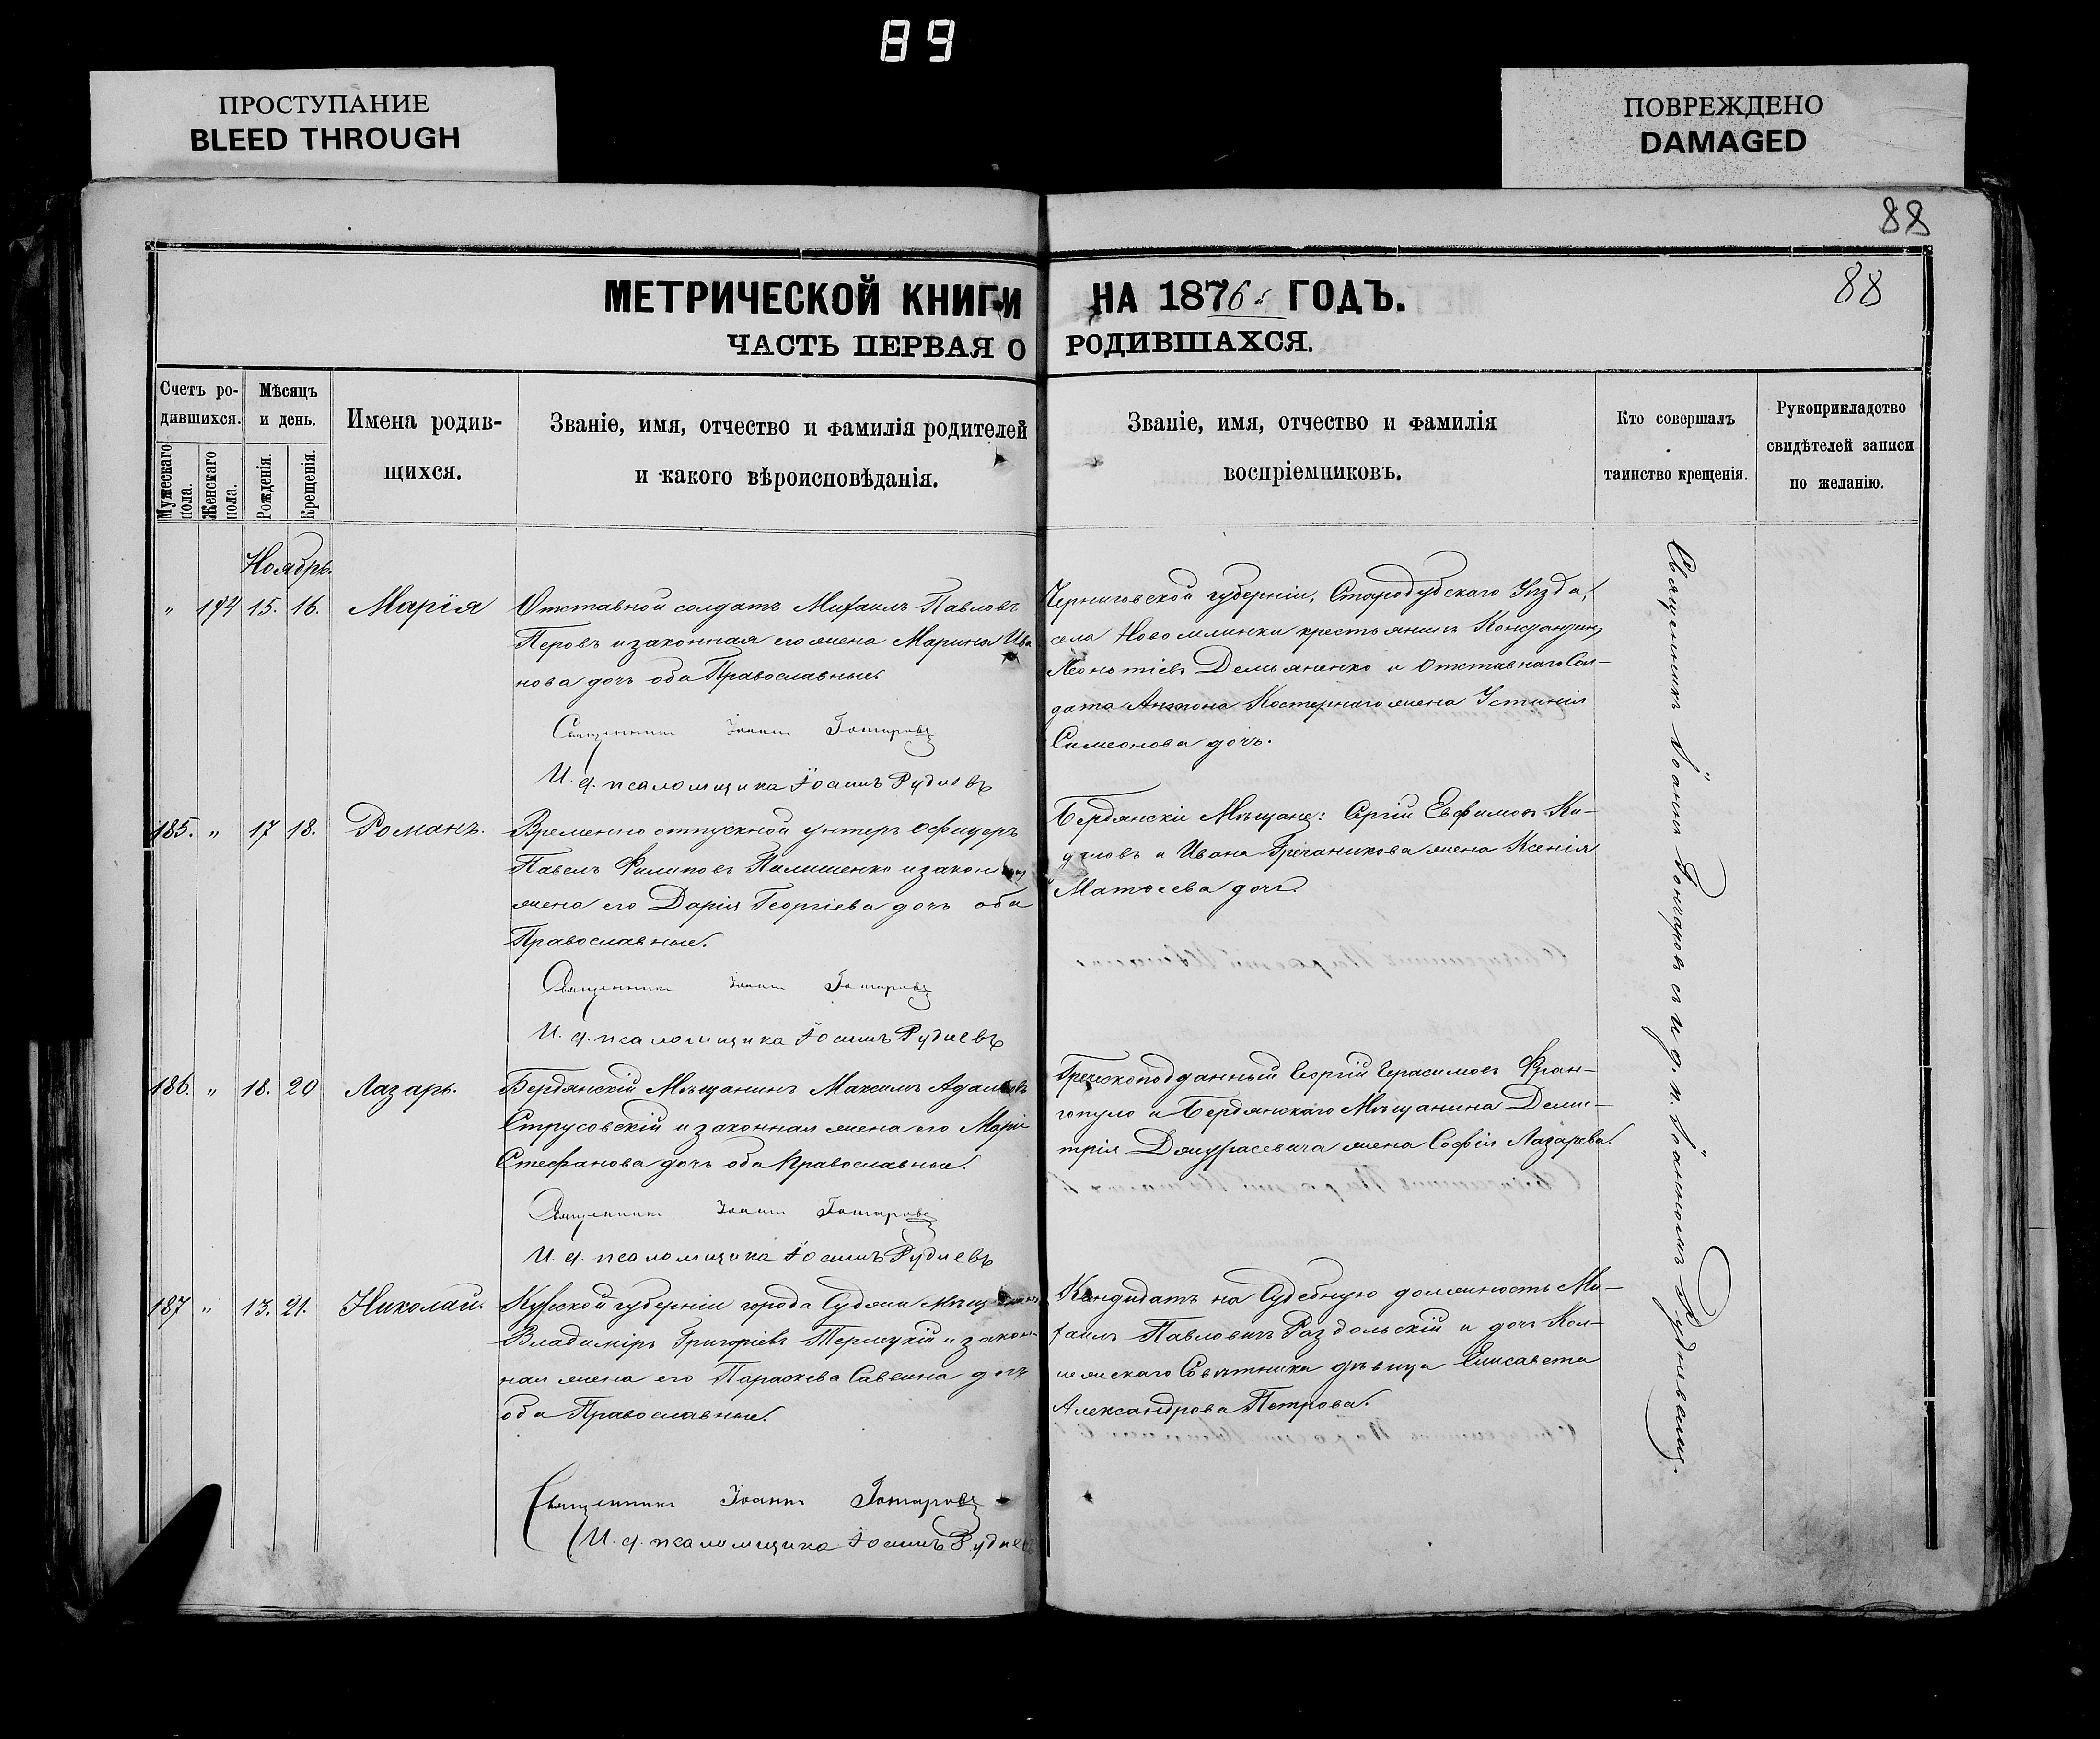 89
ПРОСТУПАНИЕ
BLEED THROUGH
ПОВРЕЖДЕНО
DAMAGED
88
88
МЕТРИЧЕСКОЙ КНИГИ НА 1876 ГОДЪ.
ЧАСТЬ ПЕРВАЯ О РОДИВШАХСЯ.
Счетъ ро-
дившихся.
Мужескаго пола.
Женскаго пола.
Мѣсяцъ
и день.
Рожденія.
Крещенія.
Имена родив-
щихся.
Званіе, имя, отчество и фамилія родителей
и какого вѣроисповѣданія.
Званіе, имя, отчество и фамилія
воспріемниковъ.
Кто совершалъ
таинство крещенія.
Рукоприкладство
свидѣтелей записи
по желанію.
Ноябрь.
" 194 15. 16. Марія
Отставной солдатъ Михаилъ Павловъ
Перовъ и законная его жена Марина Ива
нова дочь оба Православные.
Священникъ Іоаннъ
И. д. псаломщика Іоаннъ Рудневъ
Черниговской губерніи, Стародубскаго Уѣзда,
села Новомлинки крестьянинъ Константинъ
Леонтіевъ Демьяненко и Отставнаго Сол-
дата Антона Костернаго жена Устинія
Симеонова дочь.
185. " 17 18. Романъ.
Временно отпускной унтеръ офицеръ
Павелъ Филиповъ Палишенко и законная
жена его Дарія Георгіева дочь оба
Православные.
Священникъ Іоаннъ
И. д. псаломщика Іоаннъ Рудневъ
Бердянскіе Мѣщане: Сергій Евфимовъ
и Ивана Гречаникова жена Ксенія
Матвеева дочь.
186. " 18. 20 Лазарь.
Бердянскій Мѣщанинъ Максимъ Адамовъ
Струсовскій и законная жена его Марія
Стефанова дочь оба Православные.
Священникъ Іоаннъ
И. д. псаломщика Іоаннъ Рудневъ
Греческоподданный Георгій Герасимовъ Фран-
гопуло и Бердянскаго Мѣщанина Дими-
трія жена Софія Лазарева.
187 " 13. 21. Николай.
Курской губерніи города Суджи Мѣщанинъ
Владиміръ Григоріевъ и закон-
ная жена его Параскева Саввина дочь
оба Православные.
Священникъ Іоаннъ
И. д. псаломщика Іоаннъ Рудневъ
Кандидатъ на Судебную должность Ми-
хаилъ Павловичъ Раздольскій и дочь Кол-
лежскаго Совѣтника дѣвица Елисавета
Александрова Петрова.
Священникъ Іоаннъ съ и. д. п. Іоанномъ Рудневымъ.